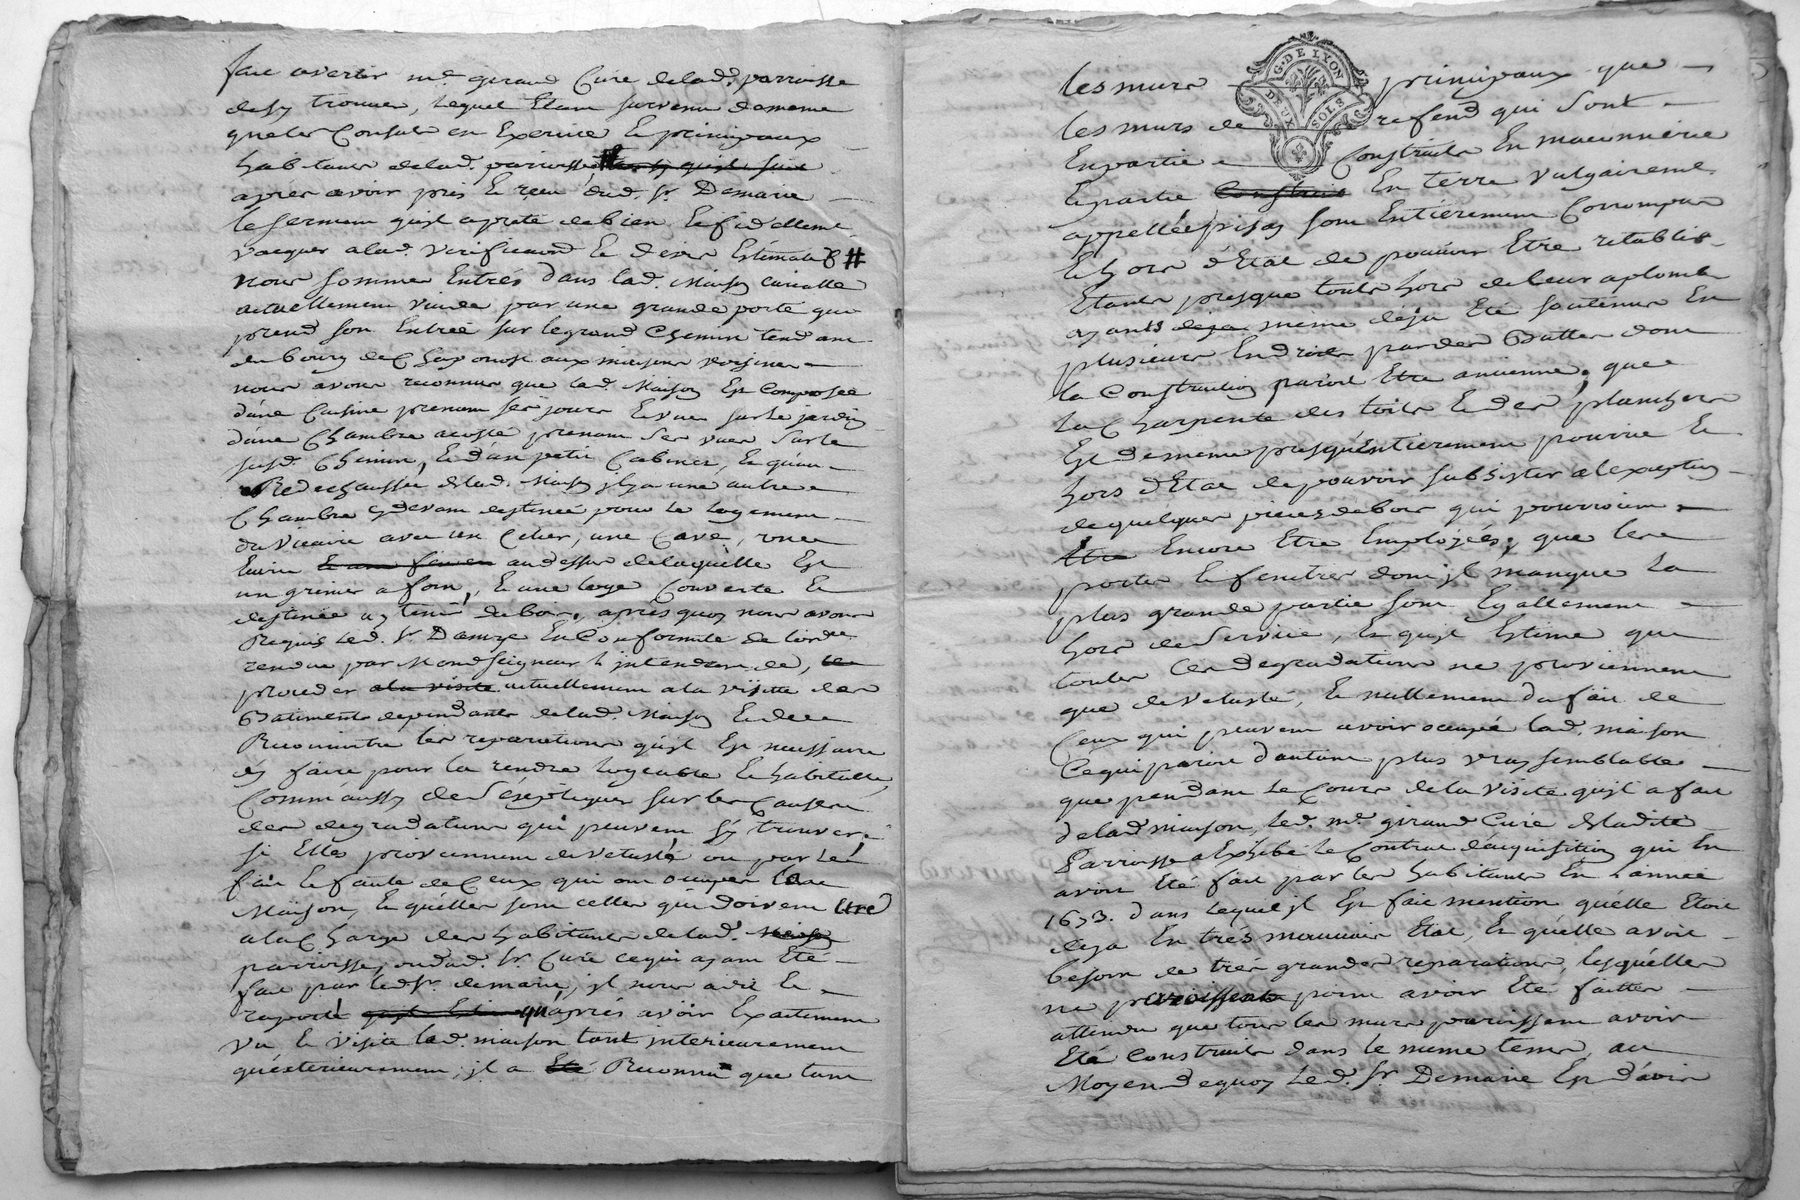 faire avertir mre. giraud Cure delad. parroisse
desy trouver, lequel Etant survenu dememe
queles Consuls en Exercice & principaux
habitans delad. paroisse
apres avoir pris & reçu dud. sr. Demarie
le serment quil a prété debien & fidellement
vacquer alad. verification & devis Estimatif #
nous sommes Entrés dans lad. Maison curialle
actuellement vuide par une grande porte qui
prend son Entrée sur legrand Chemin tendant
du bourg de Chaponost aux maisons voisines
nous avons reconnus que lad. Maison Est Composée
d'une Cuisine prenant ses jours & vue sur le jardin
d'une Chambre acosté prenant ses vues sur le
susd. Chemin, & d'un petit Cabinet, & qu'au
Redechaussée delad. Maison il y a une autre
Chambre cydevant destinée pour le logement
du vicaire avec un Celier, une Cave, une
Ecurie & une au dessus delaquelle Est
un grenier a foin, & une loge Couverte &
destinée a y tenir du bois, après quoy nous avons
Requis led. Sr. En Conformité de lordce
rendue par Monseigneur l'intendant de,
proceder ala visite actuellement a la visitte des
Batiments dependants delad. Maison & de
Reconnoitre les reparations quil Est necessaire
d'y faire pour la rendre logeable & habitable
Comm'aussy de s'expliquer sur les Causes
des degradations qui peuvent s'y trouver
si Elles proviennent devetusté ou par le
fait & faute de Ceux qui ont occuper la
Maison, & quelles sont celles qui doivent Etre
a la Charge des habitants delad. Maison
parroisse, ou dud. Sr. Curé ce qui ayant Eté
fait par led. Sr. demarie, il nous a dit &
raporté qu'après avoir Exactement
vu & visité lad. maison tant interieurement
qu'exterieurement, il a Eté Reconnu que tant
les murs principaux que
G. DE LYON
DEUX SOLS
les murs de refend qui sont
En partie Construits En maconnerie
& partie Construit En terre vulgairement
appellée pisay sont Entierement Corrompus
& hors d'Etat de pouvoir Etre retablis
Etants presque touts hors de leur aplomb
ayants deja meme deja Eté soutenus En
plusieurs Endroits par des Battes dont
la Construction paroit Etre ancienne, que
la Charpente des toits & des planchers
Est dememe presqu'Entierement pourrie &
hors d'Etat de pouvoir subsister a lexception
de quelques pieces de bois qui pourroient
Etre Encore Etre Employées, que les
portes & fenetres dont il manque la
plus grande partie sont Egallement
hors de service, & quil Estime que
toutes Ces degradations ne proviennent
que de vetusté, & nullement du fait de
Ceux qui peuvent avoir occupé lad. maison
Ce qui paroit d'autant plus vray semblable
que pendant le Cours de la visite quil a fait
delad. maison, led. mre. giraud Curé deladite
Parroisse a Exhibé le Contrat d'acquisition qui En
avoit Eté fait par les habitants En l'année
1673. dans lequel il Est fait mention qu'elle Etoit
deja En trés mauvais Etat, & qu'elle avoit
besoin de trés grandes reparations, lesquelles
ne paroissent point avoir Eté faittes
attendu que tous les murs paroissent avoir
Eté Construits dans le meme tems, au
Moyen dequoy led. Sr. Demarie Est d'avis